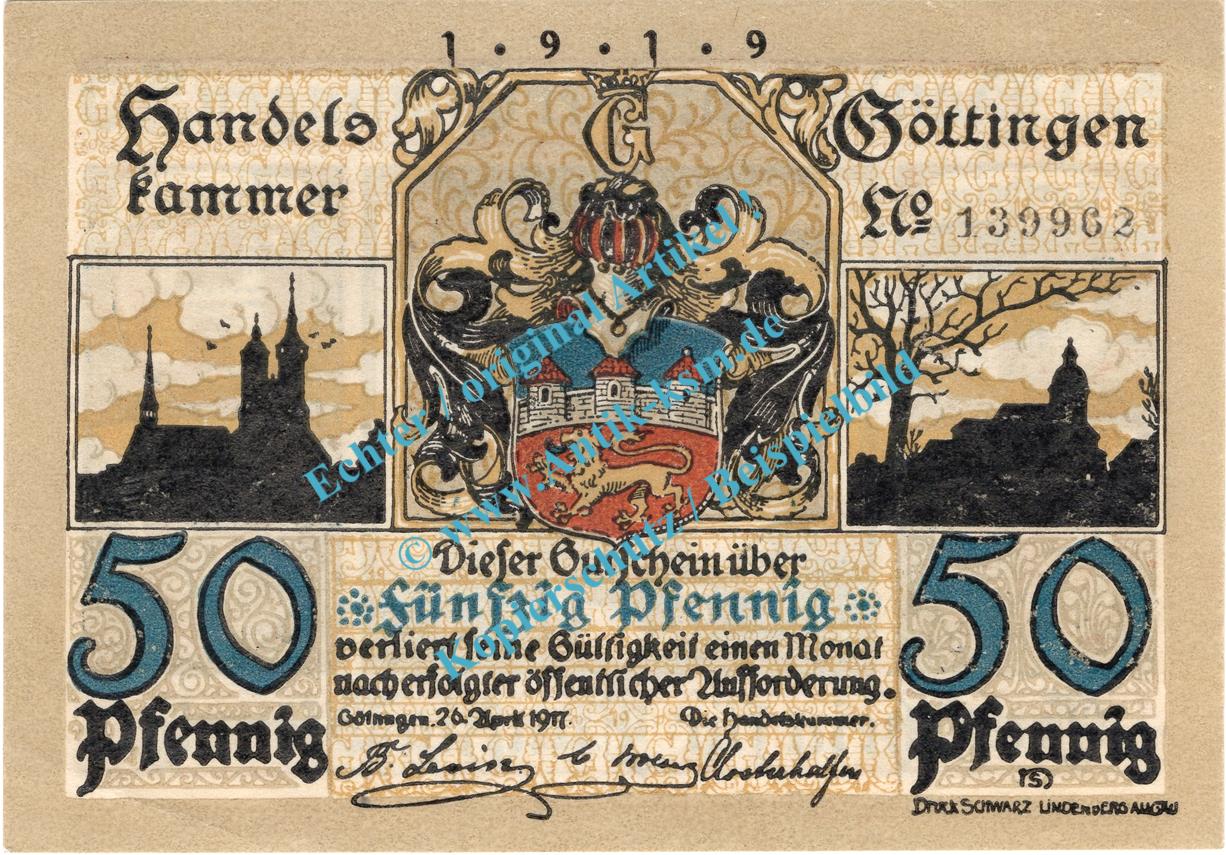 1 · 9 · 1 · 9
Handels
kammer
G
Göttingen
No 139962
50
Pfennig
50
Pfennig
(S)
Dieser Gutschein über
Fünfzig Pfennig
verliert seine Gültigkeit einen Monat
nach erfolgter öffentlicher Aufforderung.
Göttingen, 26. April 1917.
Die Handelskammer.
Druck Schwarz Lindenberg Allgäu
Echter / original Artikel !
© www.Antik-ksm.de
Kopierschutz / Beispielbild